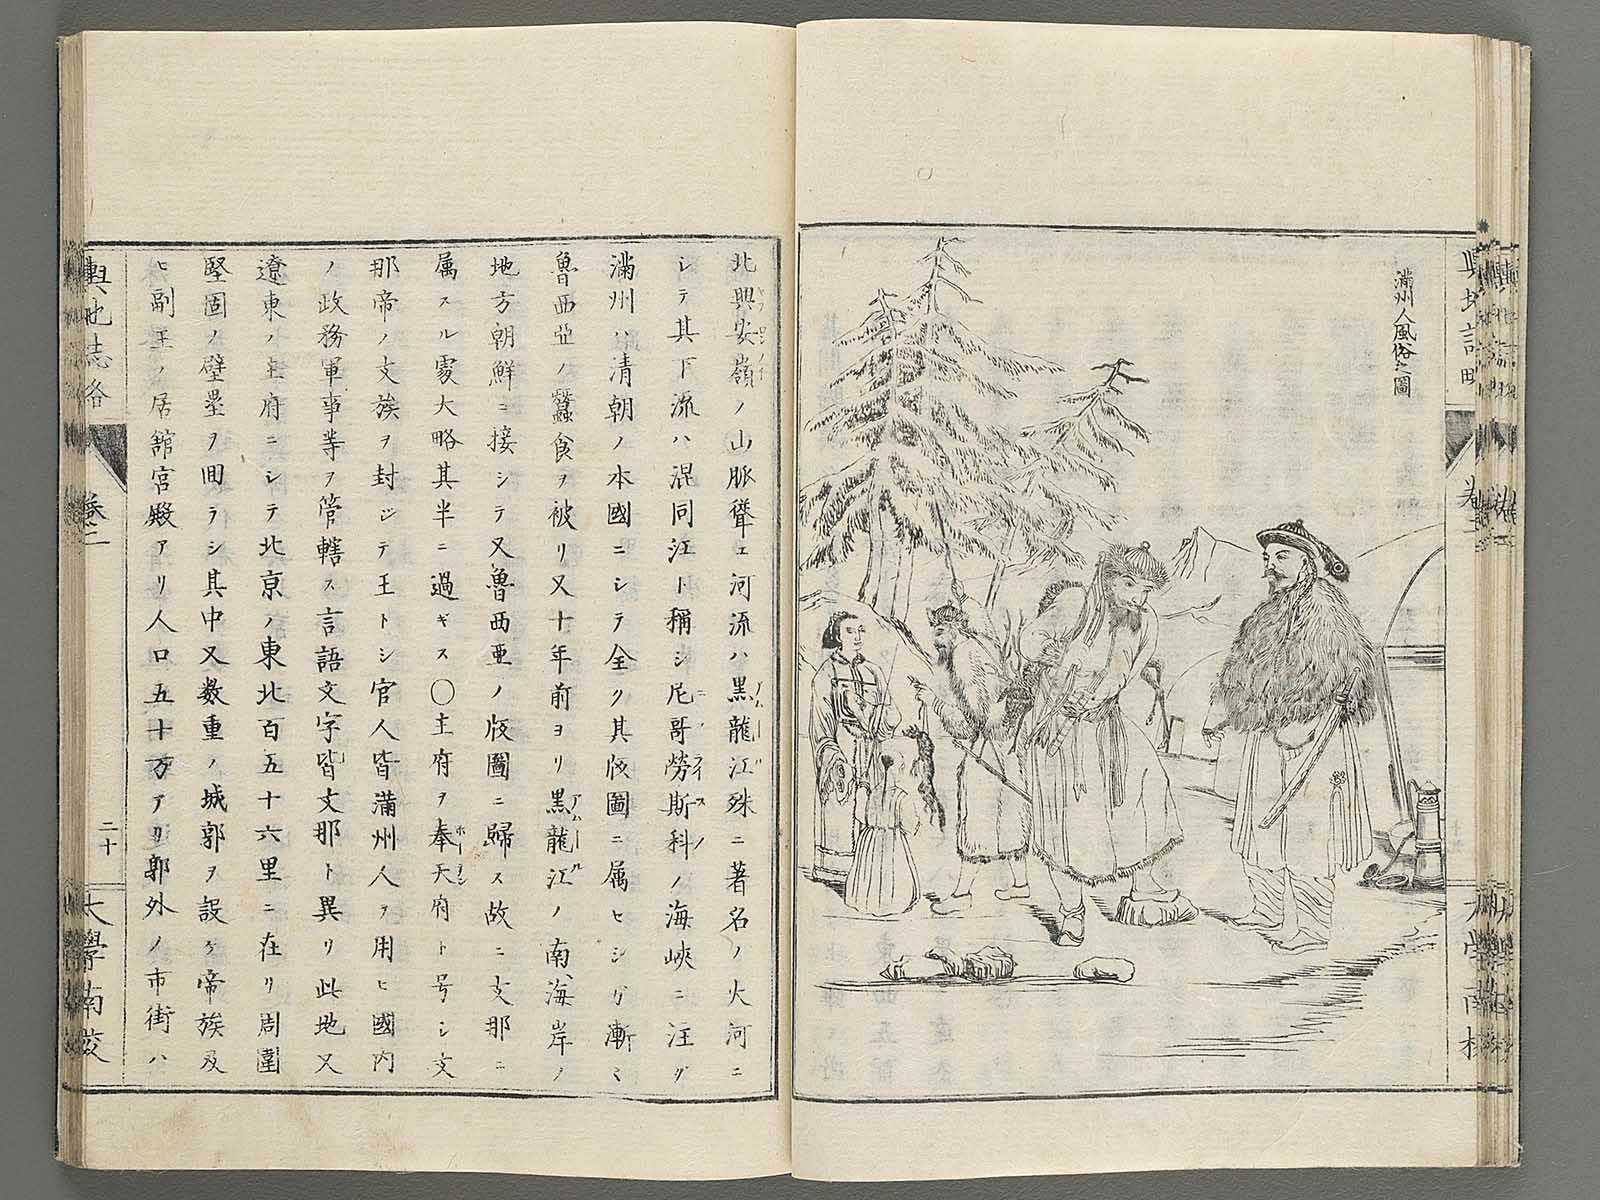 滿州人風俗之圖
北興安嶺ノ山脈聳エ河流ハ黒龍江殊ニ著名ノ大河ニ
シテ其下流ハ混同江ト稱シ尼哥勞斯科ノ海峽ニ注グ
滿州ハ清朝ノ本國ニシテ全ク其版圖ニ属セシガ漸々
魯西亞ノ蠶食ヲ被リ又十年前ヨリ黒龍江ノ南、海岸ノ
地方朝鮮ニ接シテ又魯西亜ノ版圖ニ歸ス故ニ支那ニ
属スル処大略其半ニ過ギス〇主府ヲ奉天府ト号シ支
那帝ノ支族ヲ封ジテ王トシ官人皆滿州人ヲ用ヒ國内
ノ政務軍事等ヲ管轄ス言語文字皆支那ト異リ此地又
遼東ノ主府ニシテ北京ノ東北百五十六里ニ在リ周圍
堅固ノ壁壘ヲ囬ラシ其中又数重ノ城郭ヲ設ケ帝族及
ヒ副王ノ居館宮殿アリ人口五十万アリ郭外ノ市街ハ
輿地誌畧
卷二
二十
大學南校